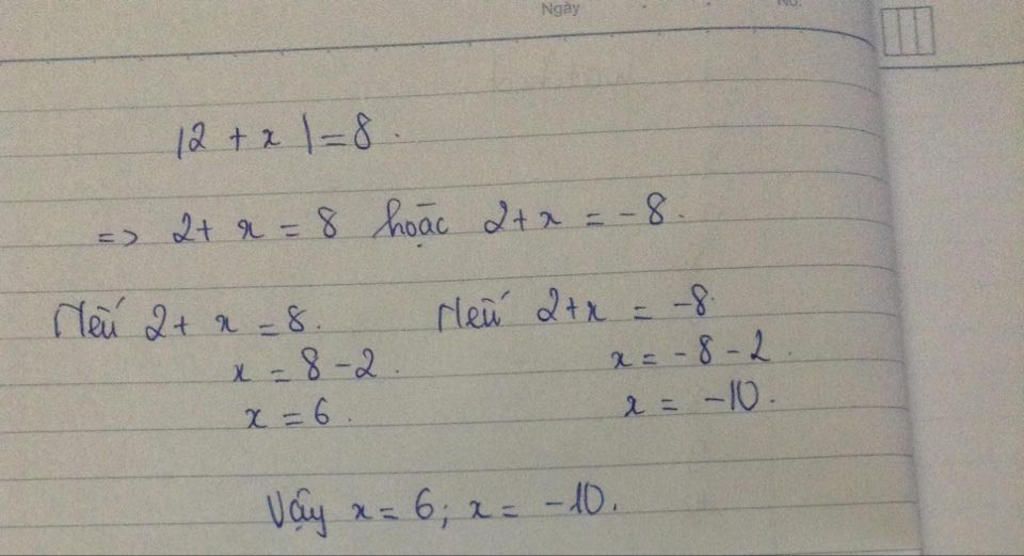 Ngày
No.
|2 + x| = 8.
=> 2 + x = 8 hoặc 2 + x = -8.
Nếu 2 + x = 8. Nếu 2 + x = -8
x = 8 - 2. x = -8 - 2.
x = 6. x = -10.
Vậy x = 6; x = -10.